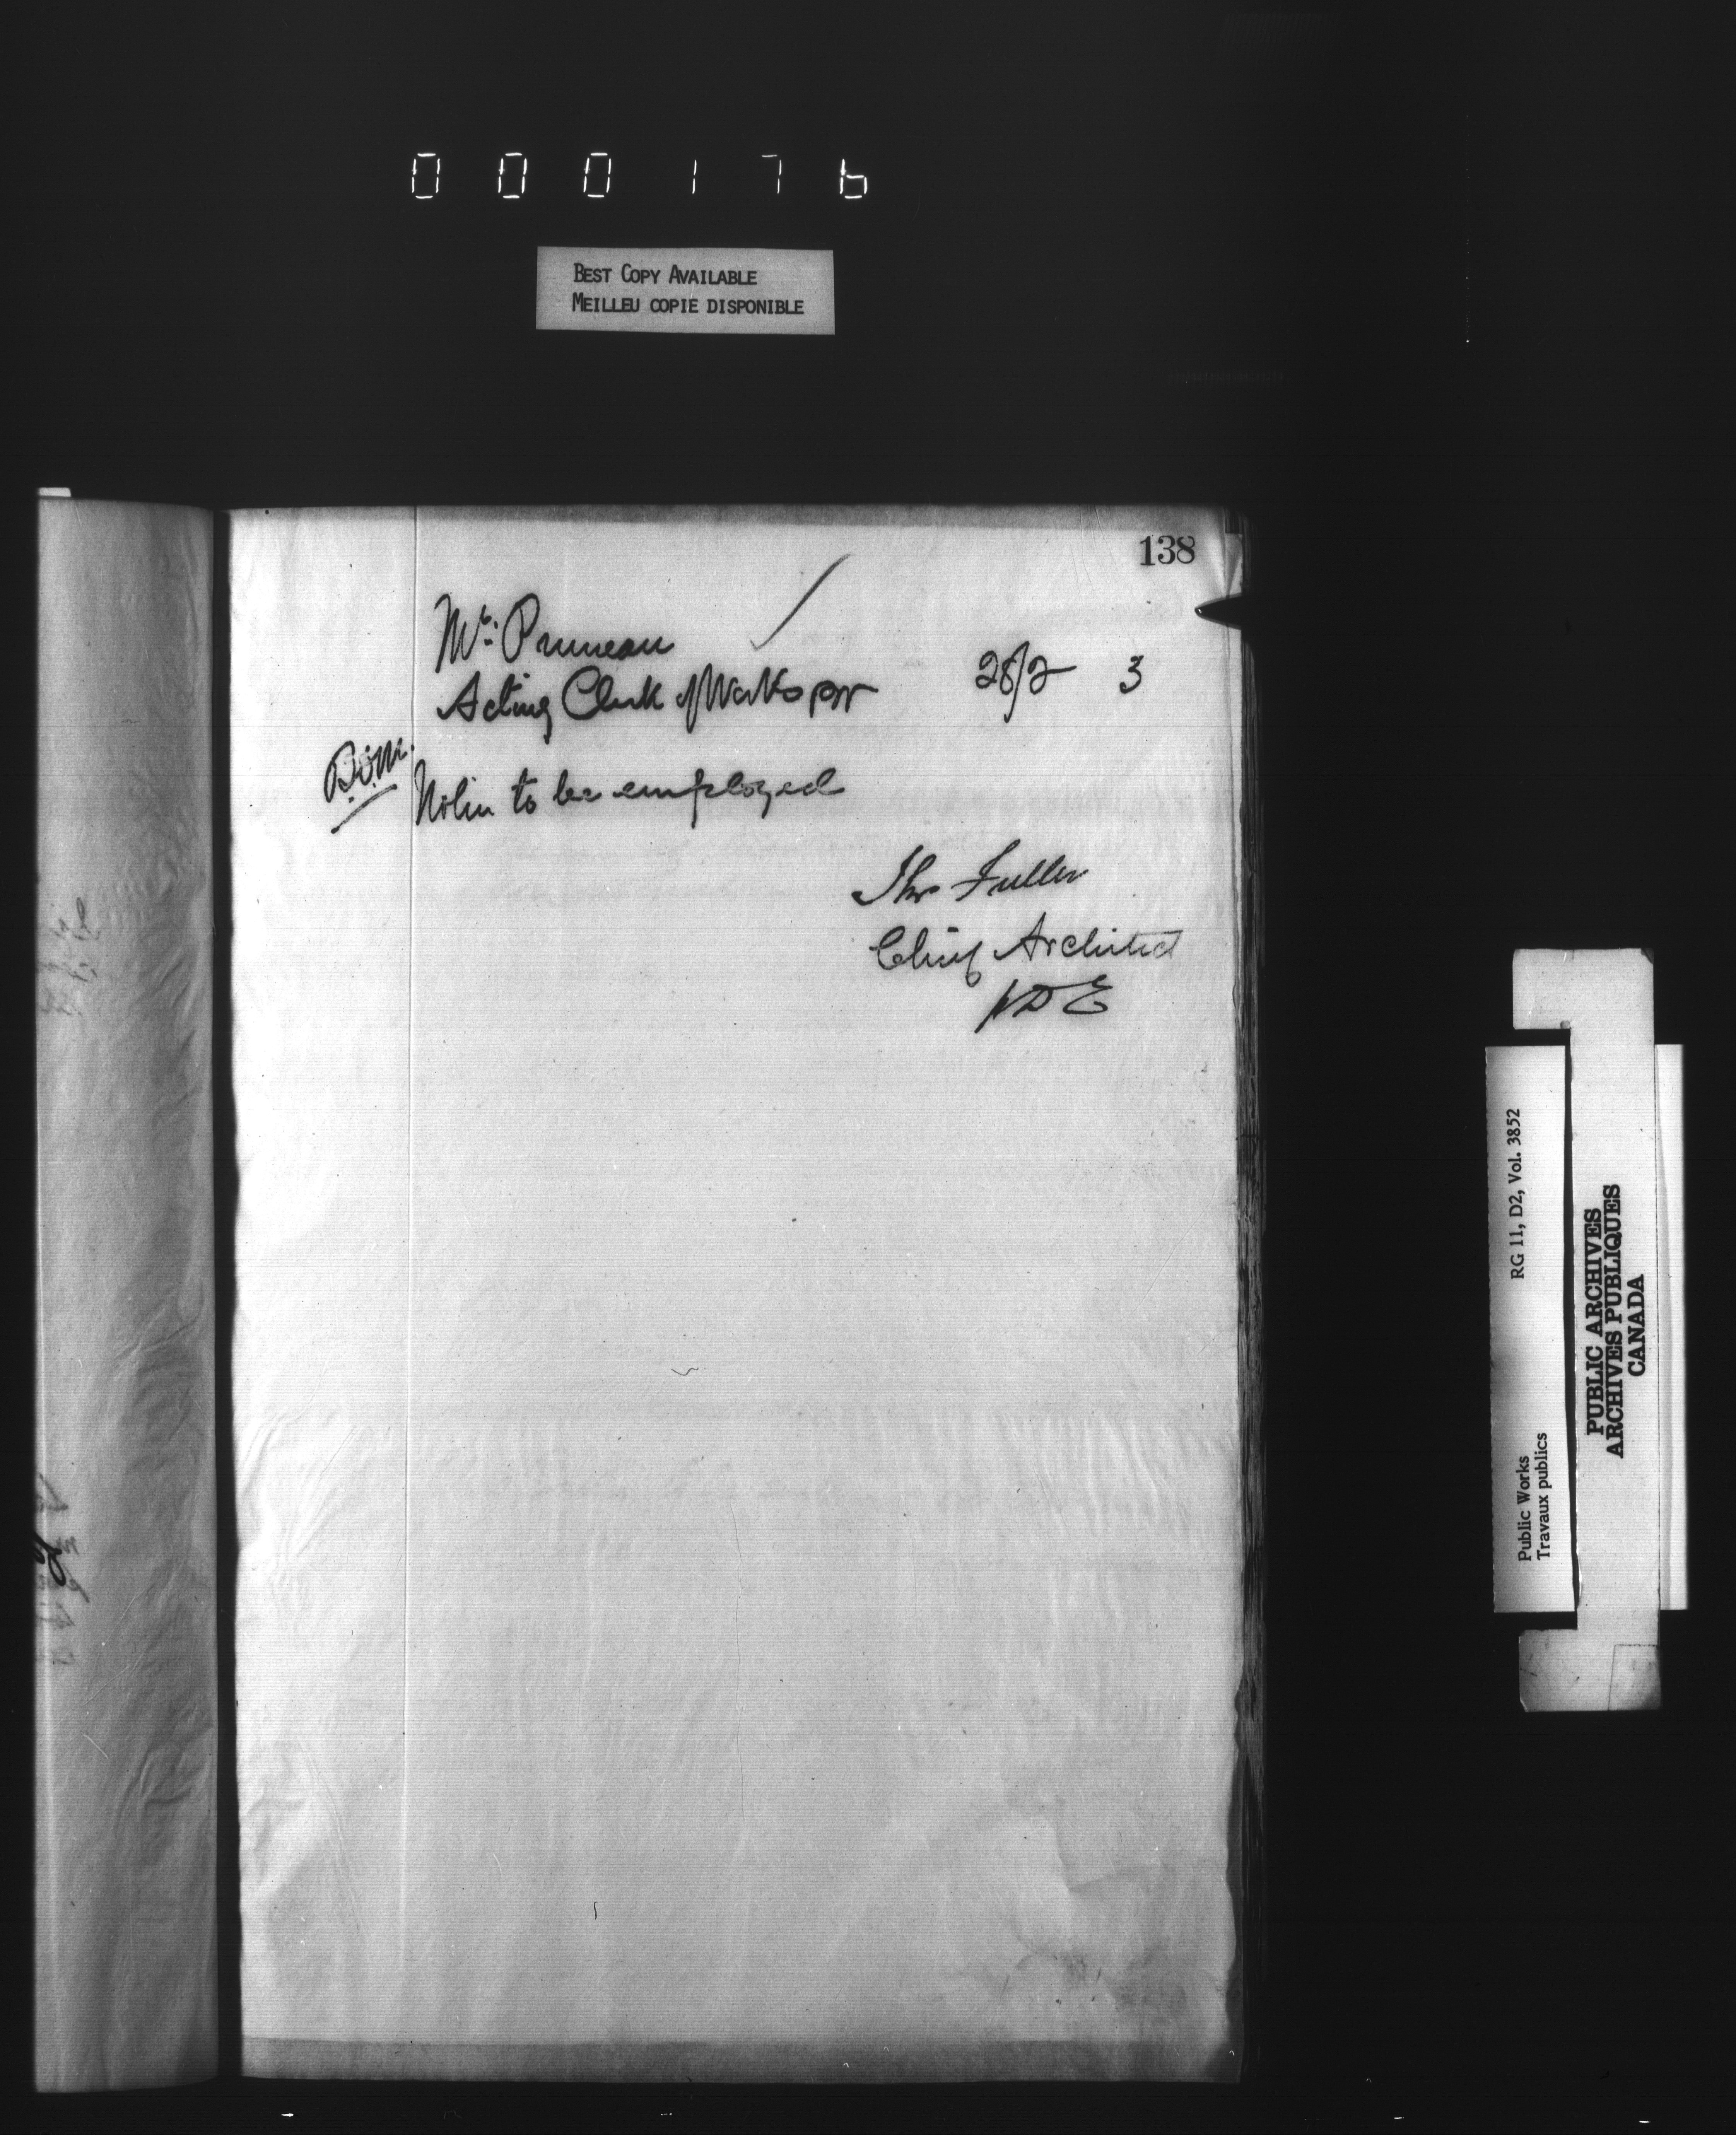 000176
BEST COPY AVAILABLE
MEILLEU COPIE DISPONIBLE
138
Mr. Pruneau
Acting Clerk of Works 28/2 3
B.O.M.
Nolin to be employed
Thos Fuller
Chief Architect
Public Works RG 11, D2, Vol. 3852
Travaux publics
PUBLIC ARCHIVES
ARCHIVES PUBLIQUES
CANADA